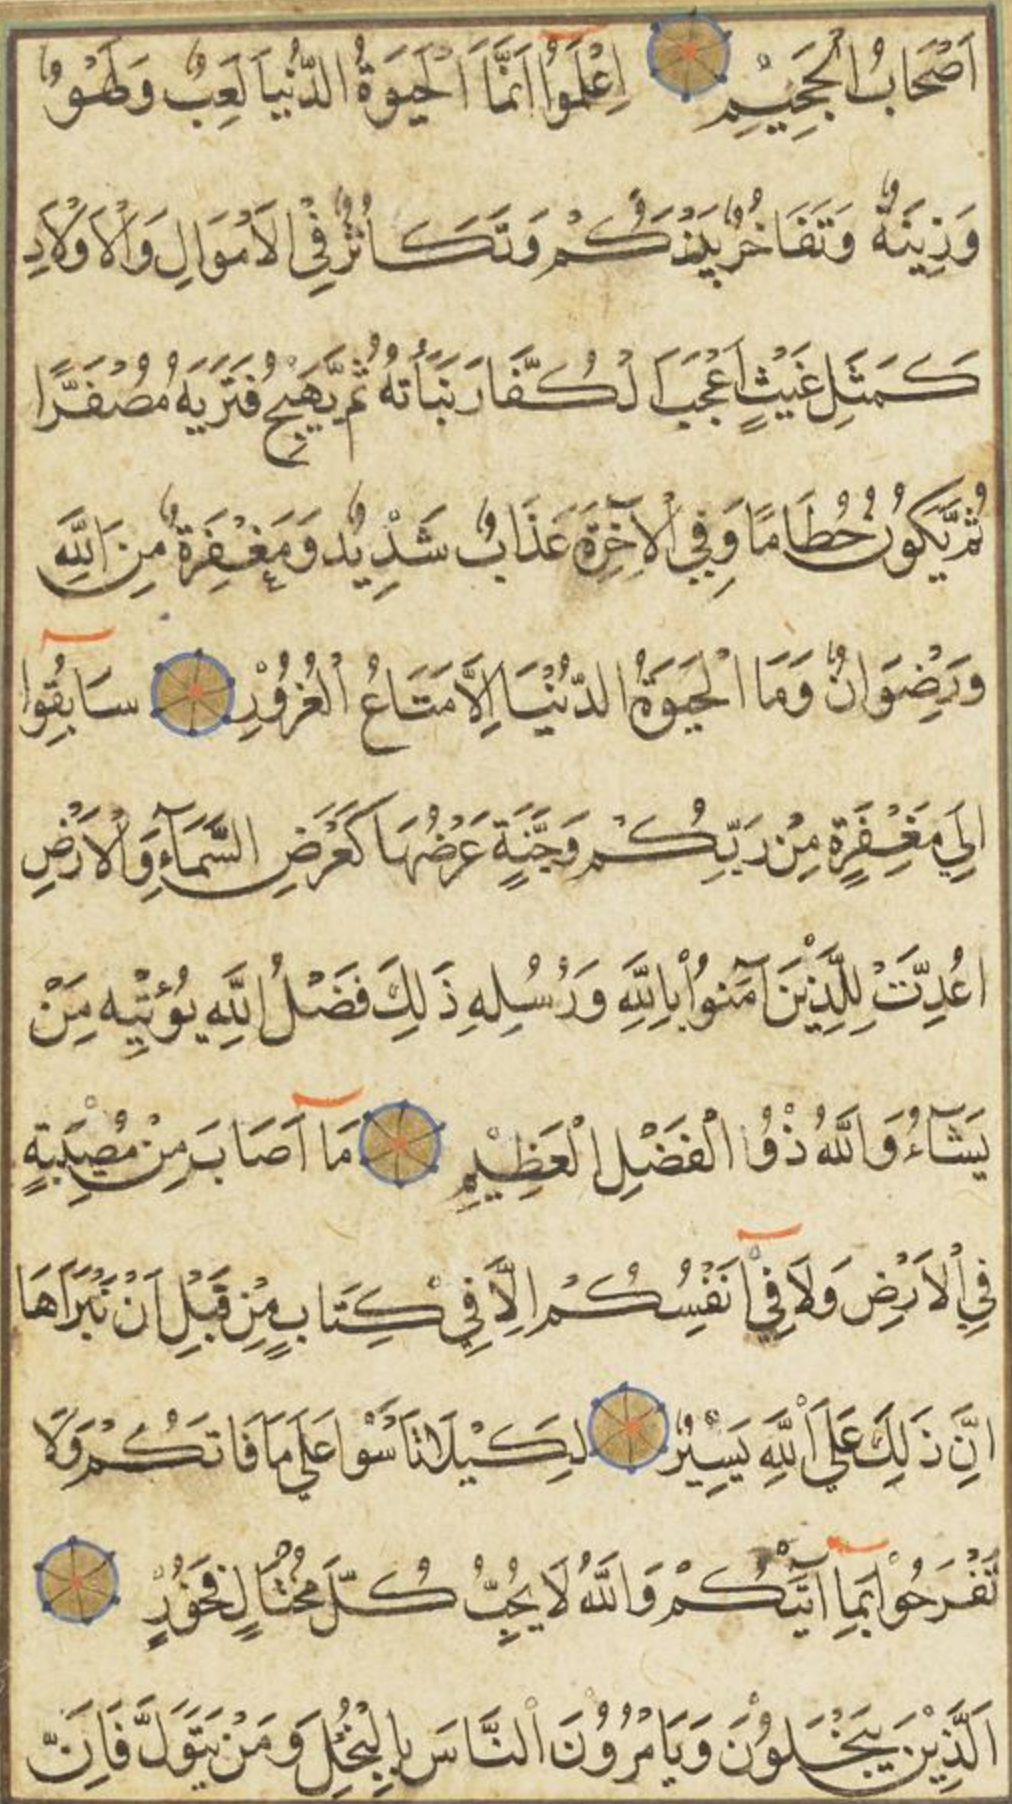 اَصْحَابُ الْجَحِيْمِ اِعْلَمُوْا اَنَّمَا الْحَيَوةُ الدُّنْيَا لَعِبٌ وَلَهْوٌ
وَزِينَةٌ وَتَفَاخُرٌ بَيْنَكُمْ وَتَكَاثُرٌ فِي الْاَمْوَالِ وَالْاَوْلَادِ
كَمَثَلِ غَيْثٍ اَعْجَبَ الْكُفَّارَ نَبَاتُهُ ثُمَّ يَهِيْجُ فَتَرَيهُ مُصْفَرًّا
ثُمَّ يَكُونُ حُطَامًا وَفِي الْآخِرَةِ عَذَابٌ شَدِيْدٌ وَمَغْفِرَةٌ مِنَ اللَّهِ
وَرِضْوَانٌ وَمَا الْحَيَوةُ الدُّنْيَا اِلَّا مَتَاعُ الْغُرُوْرِ سَابِقُوا
اِلَي مَغْفِرَةٍ مِنْ رَبِّكُمْ وَجَنَّةٍ عَرْضُهَا كَعَرْضِ السَّمَآءِ وَالْاَرْضِ
اُعِدَّتْ لِلَّذِيْنَ آمَنُوْا بِاللَّهِ وَرُسُلِهِ ذَلِكَ فَضْلُ اللَّهِ يُؤْتِيْهِ مَنْ
يَشَآءُ وَاللَّهُ ذُوْ الْفَضْلِ الْعَظِيْمِ مَا اَصَابَ مِنْ مُصِيْبَةٍ
فِي الْاَرْضِ وَلَا فِيْ اَنْفُسِكُمْ اِلَّا فِيْ كِتَابٍ مِنْ قَبْلِ اَنْ نَبْرَاَهَا
اِنَّ ذَلِكَ عَلَي اللَّهِ يَسِيْرٌ لِكَيْلَا تَاْسَوْا عَلَي مَا فَاتَكُمْ وَلَا
تَفْرَحُوْا بِمَا آتَيكُمْ وَاللَّهُ لَا يُحِبُّ كُلَّ مُخْتَالٍ فَخُوْرٍ
اَلَّذِيْنَ يَبْخَلُوْنَ وَيَاْمُرُوْنَ النَّاسَ بِالْبُخْلِ وَمَنْ يَتَوَلَّ فَاِنَّ